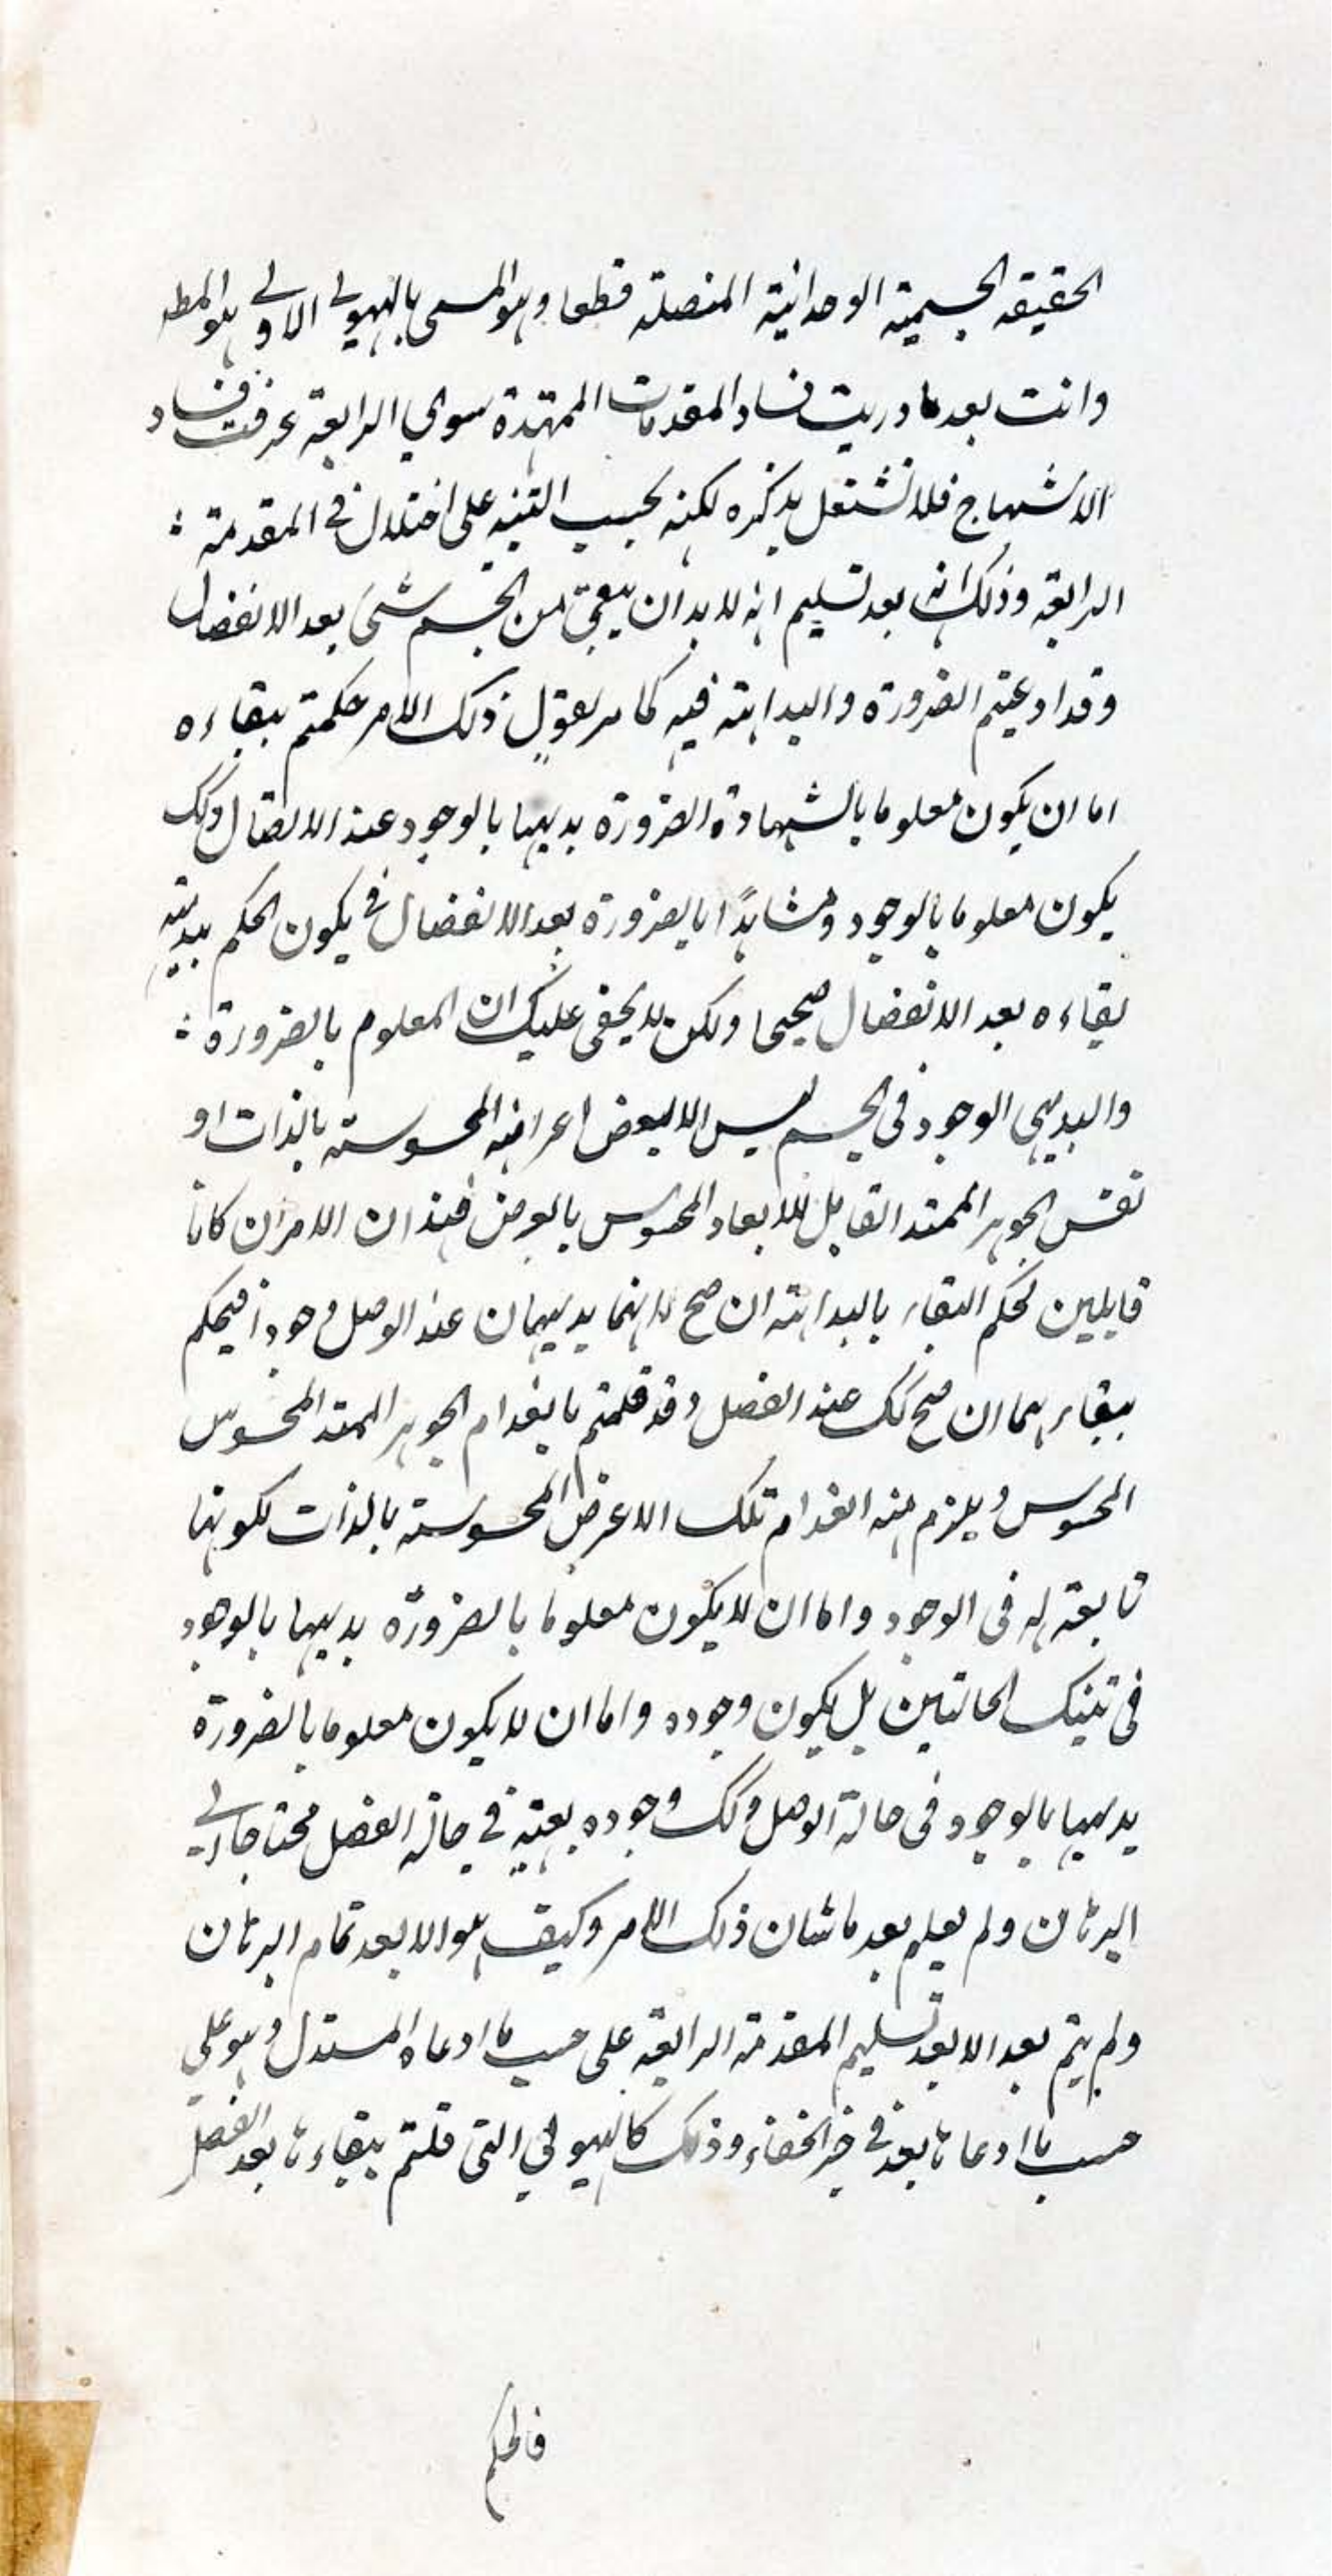 الحقيقه الجسمية الوحدانية المتصلة قطعا وهو المسمى بالهيولى الاولى هو المط
وانت بعد ما دريت فساد المقدمات الممهدة سوى الرابعة عرفت فساد
الاستنهاج فلا نشتغل بذكره لكنه يجب التنبيه على اختلال فى المقدمة :
الرابعة وذلك انه بعد تسليم انه لا بد ان يبقى من الجسم شىء بعد الانفصال
وقد ادعيتم الضرورة والبداهة فيه كما مر نقول ذلك الامر حكمتم ببقاءه
اما ان يكون معلوما بالشهادة الضرورة بديهيا بالوجود عند الاتصال وكك
يكون معلوما بالوجود ومشاهدًا بالضرورة بعد الانفصال فح يكون الحكم ببديهية
بقاءه بعد الانفصال صحيحا ولكن لا يخفى عليك ان المعلوم بالضرورة :
والبديهى الوجود فى الجسم ليس الا لبعض اعراضه المحسوسة بالذات او
نفس الجوهر الممتد القابل للابعاد المحسوس بالعرض فهذان الامران كانا
قابلين لحكم البقاء بالبداهة ان صح لانهما بديهيان عند الوصل وجودا فيحكم
ببقاءهما ان صح كك عند الفصل وقد قلتم بانعدام الجوهر الممتد المحسوس
المحسوس ويلزم منه انعدام تلك الاعرض المحسوسة بالذات لكونها
تابعة له فى الوجود واما ان لا يكون معلوما بالضرورة بديهيا بالوجود
فى تينك الحالتين بل يكون وجوده واما ان لا يكون معلوما بالضرورة
بديهيا بالوجود فى حالة الوصل وكك وجوده بعينه فى حالة الفصل محتاجا الى
البرهان ولم يعلم بعد ما شان ذلك الامر وكيف هو الا بعد تمام البرهان
ولم يتم بعد الا بعد تسليم المقدمة الرابعة على حسب ما ادعاه المستدل وهو على
حسب ما ادعاها بعد فى حيز الخفاء وذلك كالهيولى التى قلتم ببقاءها بعد الفصل
فالحكم